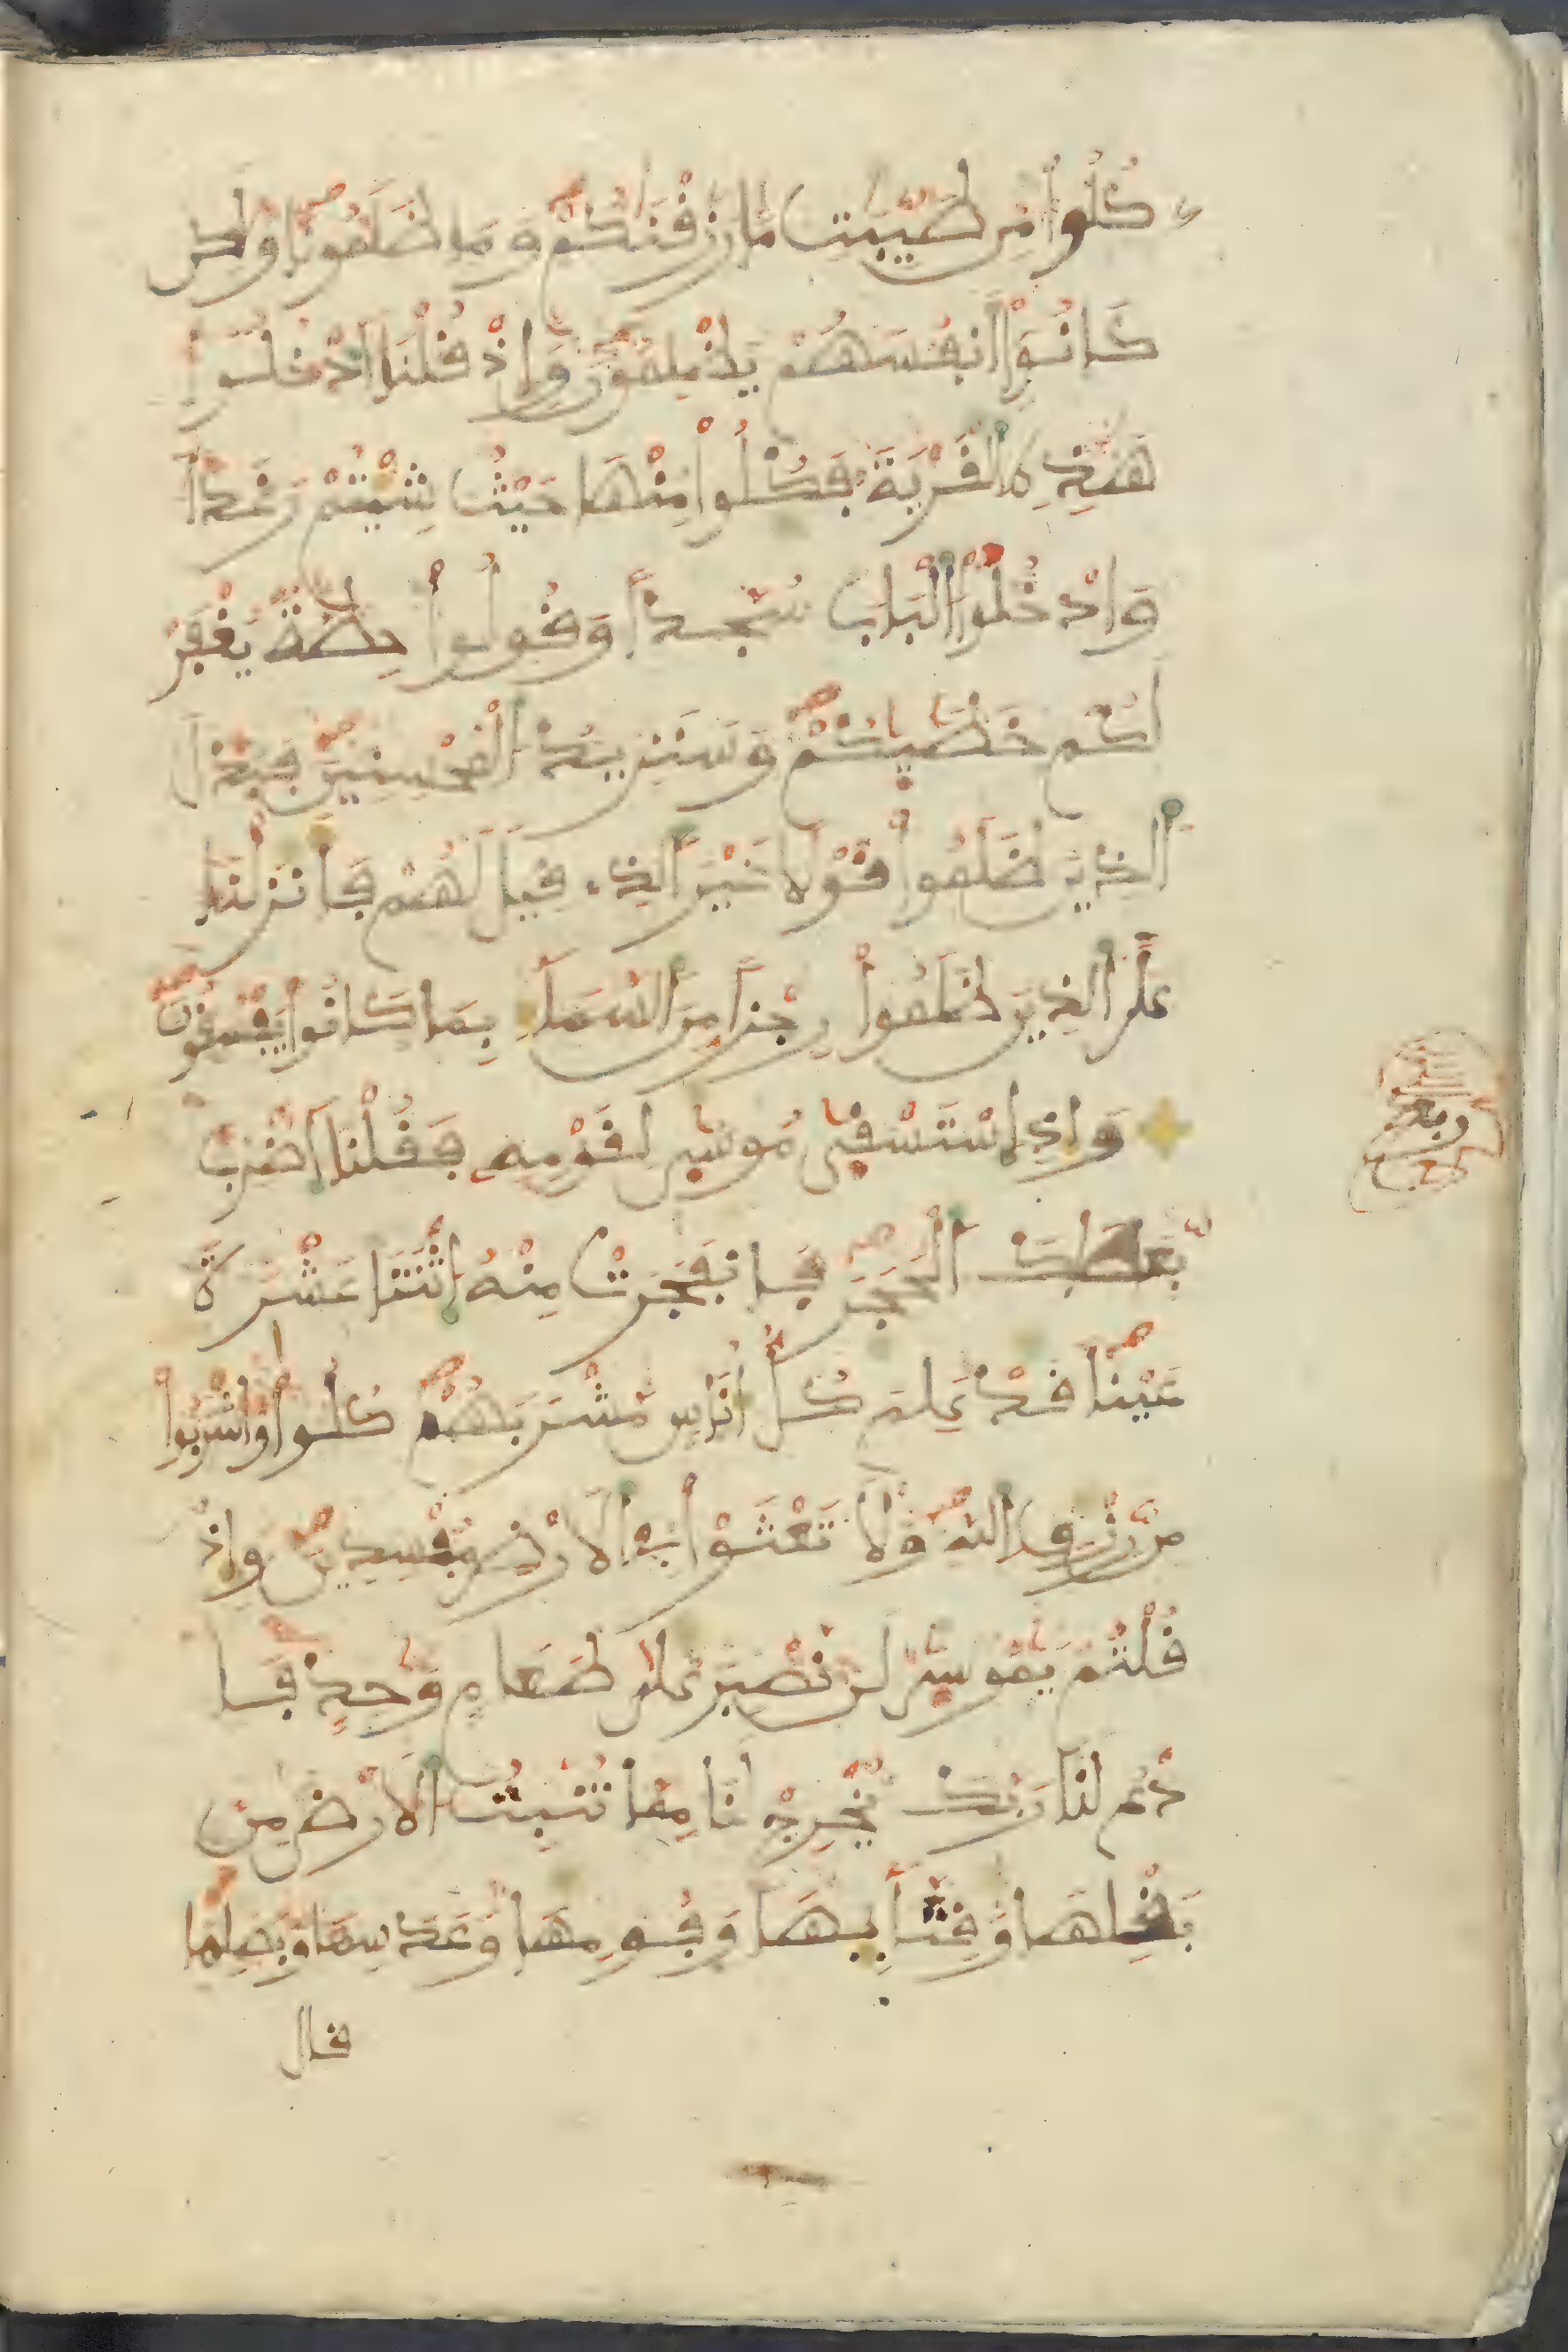 كُلُوا۟ مِن طَيِّبَٰتِ مَا رَزَقْنَٰكُمْ وَمَا ظَلَمُونَا وَلَٰكِن
كَانُوٓا۟ أَنفُسَهُمْ يَظْلِمُونَ وَإِذْ قُلْنَا ٱدْخُلُوا۟
هَٰذِهِ ٱلْقَرْيَةَ فَكُلُوا۟ مِنْهَا حَيْثُ شِيْتُمْ رَغَداً
وَادْخُلُوا۟ ٱلْبَابَ سُجَّداً وَقُولُوا۟ حِطَّةٌ يُغْفَرْ
لَكُمْ خَطَٰيَٰكُمْ وَسَنَزِيدُ ٱلْمُحْسِنِينَ فَبَدَّلَ
ٱلذِينَ ظَلَمُوا۟ قَوْلًا غَيْرَ ٱلذِے قِيلَ لَهُمْ فَأَنزَلْنَا
عَلَى ٱلذِينَ ظَلَمُوا۟ رِجْزاً مِّنَ ٱلسَّمَآءِ بِمَا كَانُوا۟ يَفْسُقُونَ
وَإِذِ ٱسْتَسْقَىٰ مُوسَىٰ لِقَوْمِهِ فَقُلْنَا ٱضْرِب
بِّعَصَاكَ ٱلْحَجَرَ فَانفَجَرَتْ مِنْهُ ٱثْنَتَا عَشْرَةَ
عَيْناً قَدْ عَلِمَ كُلُّ أُنَاسٍ مَّشْرَبَهُمْ كُلُوا۟ وَاشْرَبُوا۟
مِن رِّزْقِ ٱللَّهِ وَلَا تَعْثَوْا۟ فِے ٱلَارْضِ مُفْسِدِينَ وَإِذْ
قُلْتُمْ يَٰمُوسَىٰ لَن نَّصْبِرَ عَلَىٰ طَعَامٍ وَٰحِدٍ فَا
دْعُ لَنَا رَبَّكَ يُخْرِجْ لَنَا مِمَّا تُنۢبِتُ ٱلَارْضُ مِنۢ
بَقْلِهَا وَقِثَّآئِهَا وَفُومِهَا وَعَدَسِهَا وَبَصَلِهَا
قال
ربع